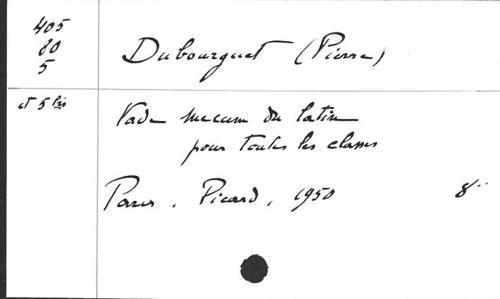 405
80
5
Dubourguet (Pierre)
et 5 bis
Vade mecum du latin
pour toutes les classes
Paris, Picard, 1950 8°